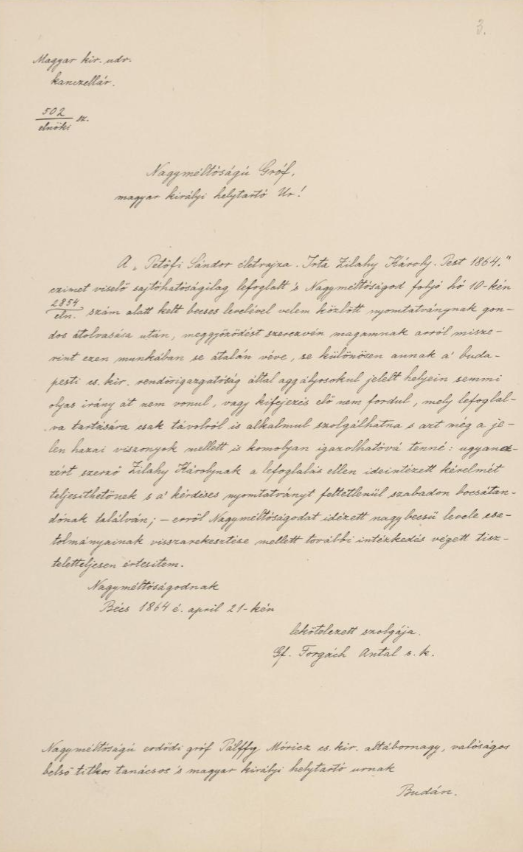 3.
Magyar kir. udv.
kanczellár.
502 sz.
elnöki
Nagyméltóságú Gróf,
magyar királyi helytartó Ur!
A „Petőfi Sándor életrajza. Irta Zilahy Károly. Pest 1864."
czimet viselő sajtóhatóságilag lefoglalt 's Nagyméltóságod folyó hó 10-kén
2854 szám alatt kelt becses levelével velem közlött nyomtatványnak gon-
eln.
dos átolvasása után, meggyőződést szerezvén magamnak arról misze-
rint ezen munkában se átalán véve, se különösen annak a' buda-
pesti cs. kir. rendőrigazgatóság által aggályosokul jelelt helyein semmi
olyas irány át nem vonul, vagy kifejezés elő nem fordul, mely lefoglal-
va tartására csak távolról is alkalmul szolgálhatna s azt még a je-
len hazai viszonyok mellett is komolyan igazolhatóvá tenné: ugyanaz-
ért szerző Zilahy Károlynak a lefoglalás ellen ideintézett kérelmét
teljesithetőnek s a' kérdéses nyomtatványt feltétlenül szabadon bocsátan-
dónak találván; — erről Nagyméltóságodat idézett nagybecsű levele cse-
tolmányainak visszarekesztése mellett további intézkedés végett tisz-
telettteljesen értesitem.
Nagyméltóságodnak
Bécs 1864 é. april 21-kén
lekötelezett szolgája.
Gf. Forgách Antal s. k.
Nagyméltóságú erdődi gróf Pálffy Móricz cs. kir. altábornagy, valóságos
belső titkos tanácsos 's magyar királyi helytartó urnak
Budán.